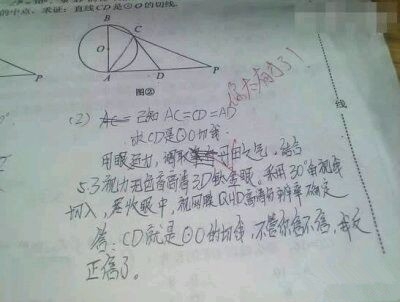 的中点。求证：直线CD是⊙O的切线.
B
C
O
A
D
P
P
图②
你太有才了！
线
(2) 已知 AC=CD=AD
求CD是⊙O切线.
用眼 调取 丹田之气，结合
5.3视力 3D钛金眼。采用30°角视线
切入，聚收眼中，视网膜QHD高清 辨率确定
答：CD就是⊙O的切线，不管你信不信，我反
正信了。